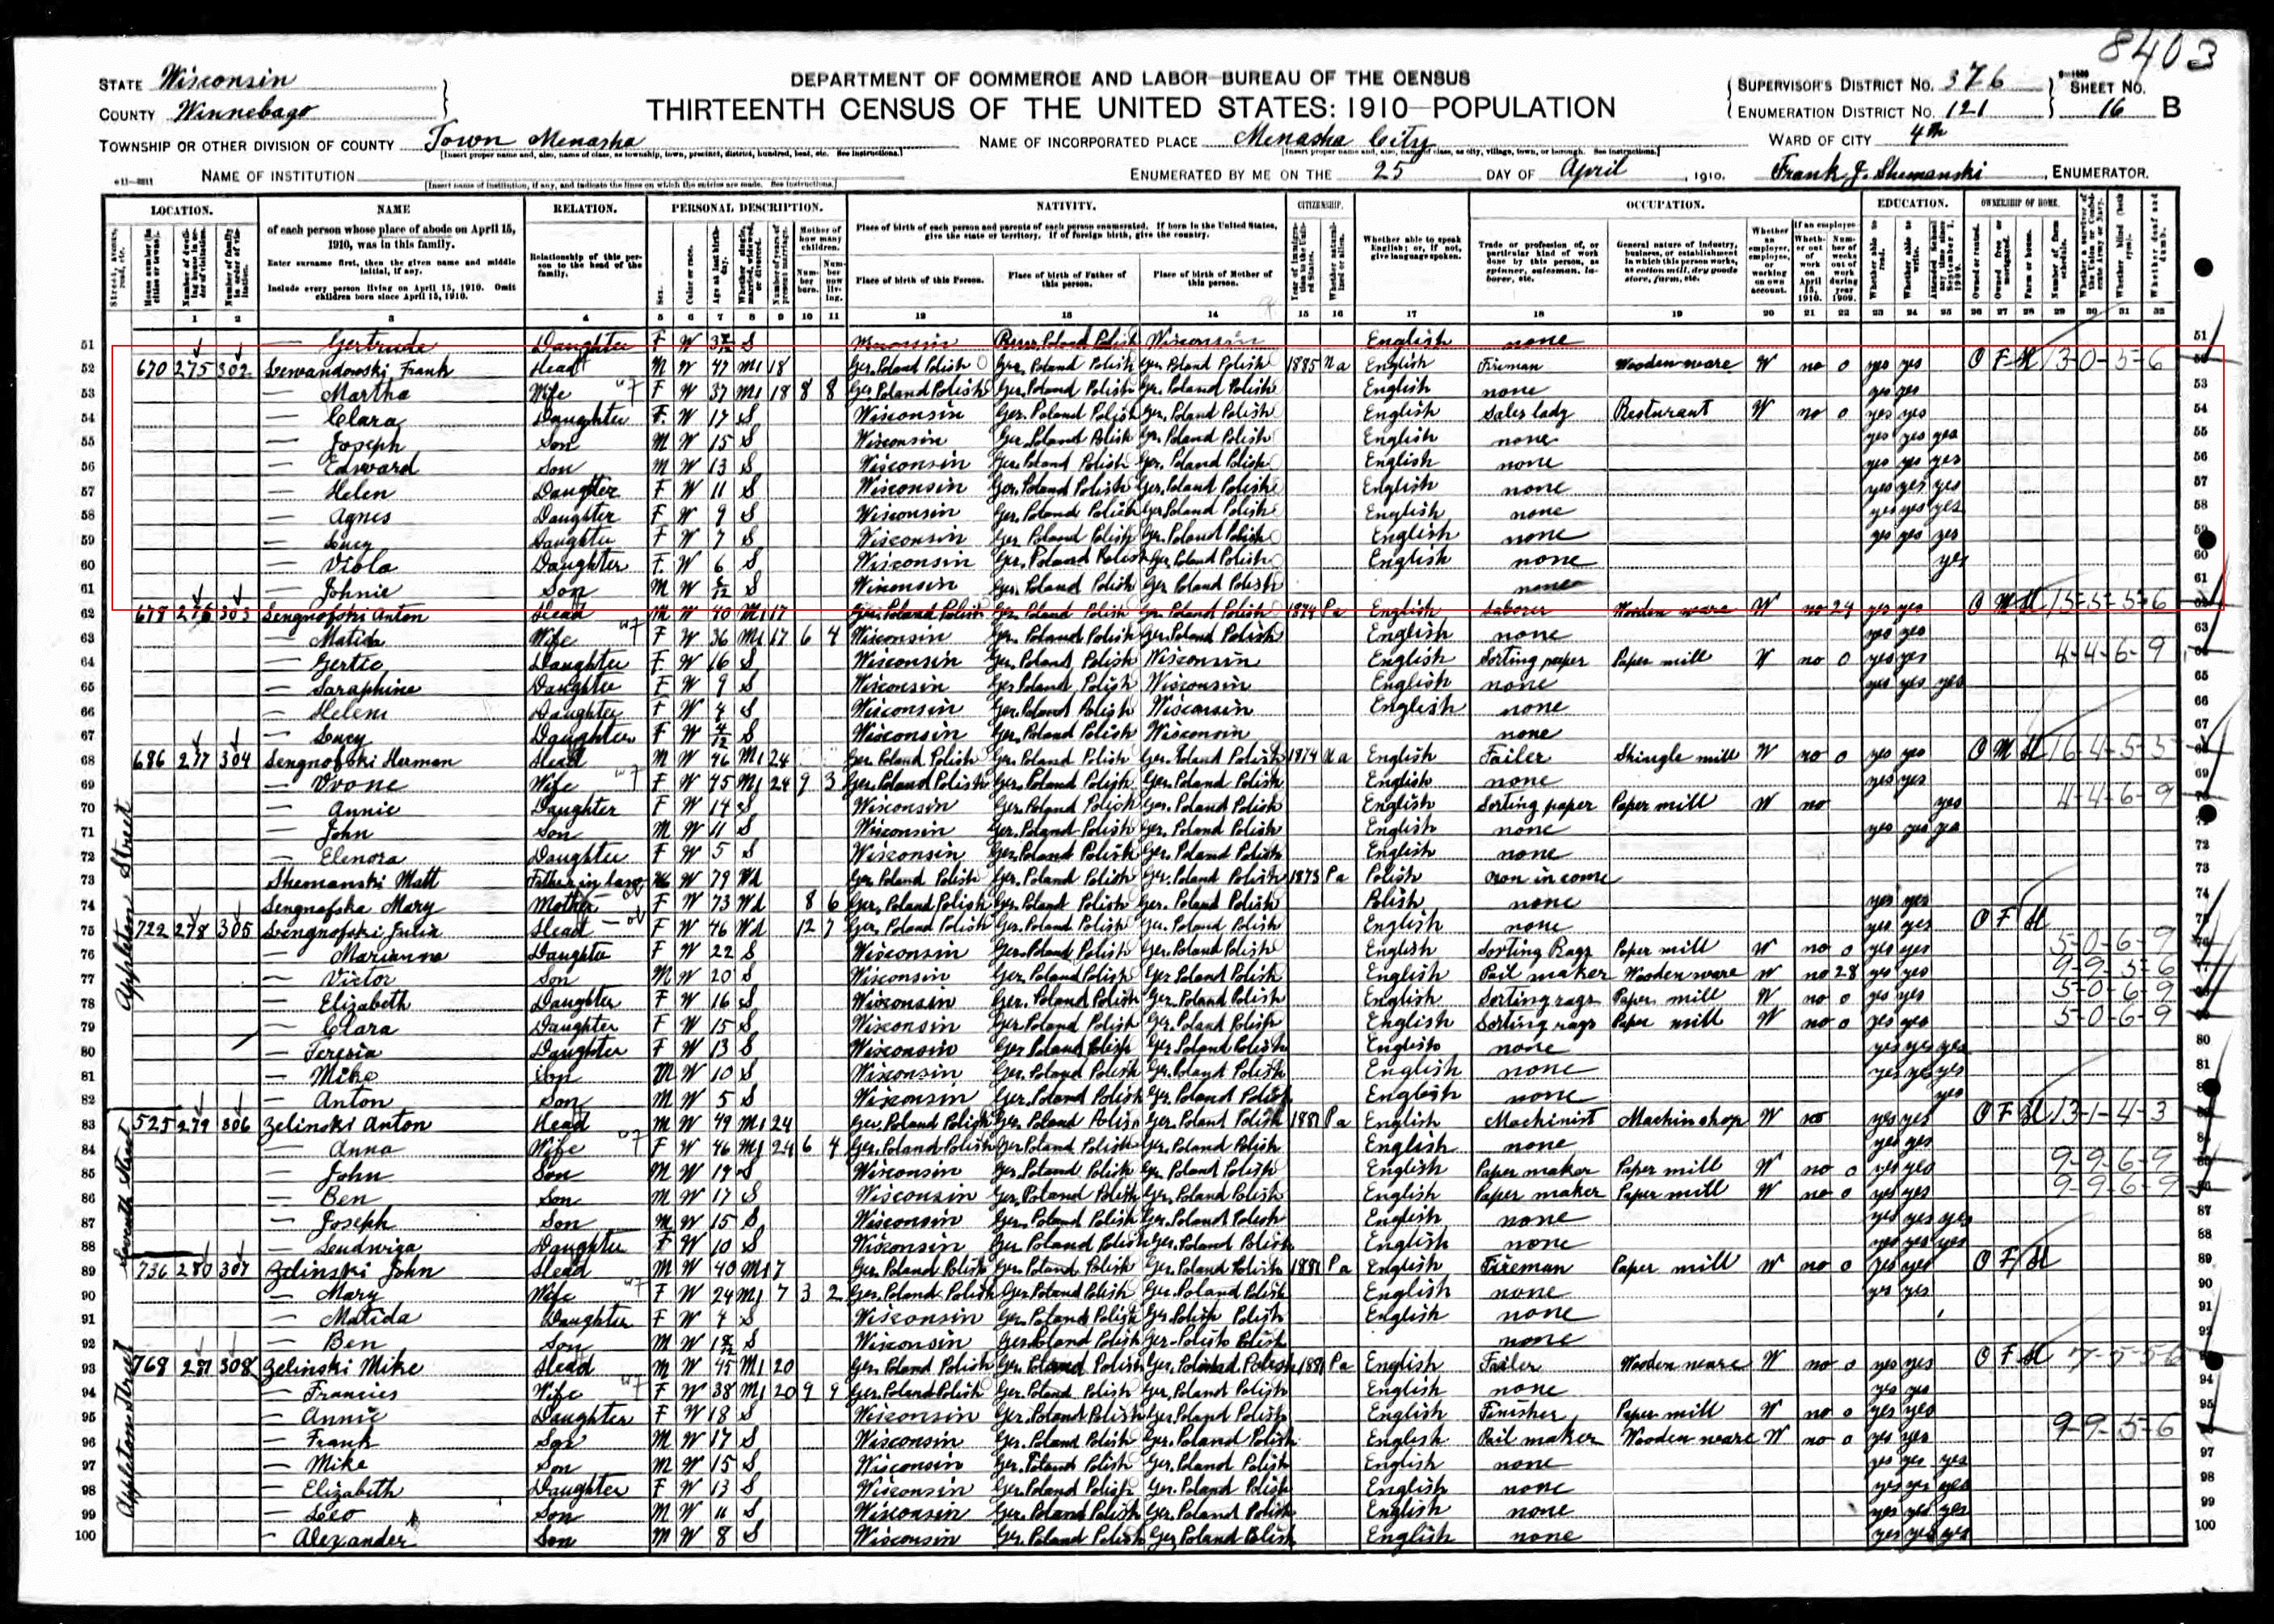 8403
STATE Wisconsin
COUNTY Winnebago
DEPARTMENT OF COMMERCE AND LABOR—BUREAU OF THE CENSUS
THIRTEENTH CENSUS OF THE UNITED STATES: 1910—POPULATION
SUPERVISOR'S DISTRICT No. 376
ENUMERATION DISTRICT No. 121
SHEET No. 16 B
TOWNSHIP OR OTHER DIVISION OF COUNTY Town Menasha
NAME OF INCORPORATED PLACE Menasha City
WARD OF CITY 4th
NAME OF INSTITUTION
[Insert name of institution, if any, and indicate the lines on which the entries are made. See instructions.]
ENUMERATED BY ME ON THE 25 DAY OF April, 1910. Frank J. Shemanski, ENUMERATOR.
LOCATION. NAME RELATION. PERSONAL DESCRIPTION. NATIVITY. CITIZENSHIP. OCCUPATION. EDUCATION. OWNERSHIP OF HOME.
of each person whose place of abode on April 15, 1910, was in this family.
Enter surname first, then the given name and middle initial, if any.
Include every person living on April 15, 1910. Omit children born since April 15, 1910.
Relationship of this person to the head of the family.
Place of birth of each person and parents of each person enumerated. If born in the United States, give the state or territory. If of foreign birth, give the country.
Place of birth of this Person. Place of birth of Father of this person. Place of birth of Mother of this person.
Whether able to speak English; or, if not, give language spoken.
Trade or profession of, or particular kind of work done by this person, as spinner, salesman, laborer, etc.
General nature of industry, business, or establishment in which this person works, as cotton mill, dry goods store, farm, etc.
1 2 3 4 5 6 7 8 9 10 11 12 13 14 15 16 17 18 19 20 21 22 23 24 25 26 27 28 29 30 31 32
51 — Gertrude Daughter F W S Wisconsin Wisconsin English none
52 670 275 302 Lewandowski Frank Head M W 47 M1 18 Ger. Poland Polish Ger. Poland Polish Ger. Poland Polish 1885 Na English Fireman Wooden ware W no 0 yes yes O F H 3-0-5-6
53 — Martha Wife F W 37 M1 18 8 8 Ger Poland Polish Ger. Poland Polish Ger. Poland Polish English none yes yes
54 — Clara Daughter F W 17 S Wisconsin Ger. Poland Polish Ger. Poland Polish English Sales lady Resturant W no 0 yes yes
55 — Joseph Son M W 15 S Wisconsin Ger. Poland Polish Ger. Poland Polish English none yes yes yes
56 — Edward Son M W 13 S Wisconsin Ger. Poland Polish Ger. Poland Polish English none yes yes yes
57 — Helen Daughter F W 11 S Wisconsin Ger. Poland Polish Ger. Poland Polish English none yes yes yes
58 — Agnes Daughter F W 9 S Wisconsin Ger. Poland Polish Ger Poland Polish English none yes yes yes
59 — Lucy Daughter F W 7 S Wisconsin Ger. Poland Polish Ger. Poland Polish English none yes yes yes
60 — Viola Daughter F W 6 S Wisconsin Ger. Poland Polish Ger. Poland Polish English none yes
61 — Johnie Son M W S Wisconsin Ger. Poland Polish Ger Poland Polish none
62 678 276 303 Sengnofski Anton Head M W 40 M1 17 Ger. Poland Polish Ger. Poland Polish Ger. Poland Polish 1874 Pa English Laborer Wooden ware W no 24 yes yes O M H 15-5-5-6
63 — Matida Wife F W 36 M1 17 6 4 Wisconsin Ger. Poland Polish Ger. Poland Polish English none yes yes
64 — Gertie Daughter F W 16 S Wisconsin Ger. Poland Polish Wisconsin English Sorting paper Paper mill W no 0 yes yes 4-4-6-9
65 — Saraphine Daughter F W 9 S Wisconsin Ger Poland Polish Wisconsin English none yes yes yes
66 — Helen Daughter F W 4 S Wisconsin Ger. Poland Polish Wisconsin English none
67 — Lucy Daughter F W S Wisconsin Ger. Poland Polish Wisconsin none
68 686 277 304 Sengnofski Herman Head M W 46 M1 24 Ger Poland Polish Ger. Poland Polish Ger. Poland Polish 1874 Na English Failer Shingle mill W no 0 yes yes O M H 16-4-5-5
69 — Vrone Wife F W 45 M1 24 9 3 Ger. Poland Polish Ger. Poland Polish Ger. Poland Polish English none yes yes
70 — Annie Daughter F W 14 S Wisconsin Ger. Poland Polish Ger. Poland Polish English Sorting paper Paper mill W no yes 4-4-6-9
71 — John Son M W 11 S Wisconsin Ger. Poland Polish Ger. Poland Polish English none yes yes ya
72 — Elenora Daughter F W 5 S Wisconsin Ger. Poland Polish Ger. Poland Polish English none
73 Shemanski Matt Father in law M W 79 Wd Ger Poland Polish Ger. Poland Polish Ger. Poland Polish 1873 Pa Polish own income
74 Sengnofska Mary Mother F W 73 Wd 8 6 Ger. Poland Polish Ger. Poland Polish Ger. Poland Polish Polish none yes yes
75 722 278 305 Sengnofski Julia Head F W 46 Wd 12 7 Ger. Poland Polish Ger. Poland Polish Ger. Poland Polish English none yes yes O F H
76 — Marianna Daughter F W 22 S Wisconsin Ger. Poland Polish Ger. Poland Polish English Sorting Rags Paper mill W no 0 yes yes 5-0-6-9
77 — Victor Son M W 20 S Wisconsin Ger. Poland Polish Ger Poland Polish English Pail maker Wooden ware W no 28 yes yes 9-9-5-6
78 — Elizabeth Daughter F W 16 S Wisconsin Ger. Poland Polish Ger. Poland Polish English Sorting rags Paper mill W no 0 yes yes 5-0-6-9
79 — Clara Daughter F W 15 S Wisconsin Ger. Poland Polish Ger. Poland Polish English Sorting rags Paper mill W no 0 yes yes 5-0-6-9
80 — Teresia Daughter F W 13 S Wisconsin Ger Poland Polish Ger Poland Polish English none yes yes yes
81 — Mike Son M W 10 S Wisconsin Ger. Poland Polish Ger. Poland Polish English none yes yes yes
82 — Anton Son M W 5 S Wisconsin Ger. Poland Polish Ger. Poland Polish English none yes
83 525 279 306 Zelinski Anton Head M W 49 M1 24 Ger. Poland Polish Ger Poland Polish Ger. Poland Polish 1881 Pa English Machinist Machin shop W no yes yes O F H 13-1-4-3
84 — Anna Wife F W 46 M1 24 6 4 Ger. Poland Polish Ger Poland Polish Ger. Poland Polish English none yes yes
85 — John Son M W 19 S Wisconsin Ger. Poland Polish Ger. Poland Polish English Paper maker Paper mill W no 0 yes yes 9-9-6-9
86 — Ben Son M W 17 S Wisconsin Ger. Poland Polish Ger. Poland Polish English Paper maker Paper mill W no 0 yes yes 9-9-6-9
87 — Joseph Son M W 15 S Wisconsin Ger. Poland Polish Ger. Poland Polish English none yes yes yes
88 — Ludwiga Daughter F W 10 S Wisconsin Ger Poland Polish Ger. Poland Polish English none yes yes yes
89 736 280 307 Zelinski John Head M W 40 M1 7 Ger. Poland Polish Ger. Poland Polish Ger. Poland Polish 1881 Pa English Fireman Paper mill W no 0 yes yes O F H
90 — Mary Wife F W 24 M1 7 3 2 Ger. Poland Polish Ger Poland Polish Ger. Poland Polish English none yes yes
91 — Matida Daughter F W 4 S Wisconsin Ger. Poland Polish Ger. Polish Polish English none
92 — Ben Son M W S Wisconsin Ger. Poland Polish Ger. Polish Polish none
93 768 281 308 Zelinski Mike Head M W 45 M1 20 Ger. Poland Polish Ger Poland Polish Ger. Poland Polish 1881 Pa English Failer Wooden ware W no 0 yes yes O F H 7-5-5-6
94 — Francies Wife F W 38 M1 20 9 9 Ger. Poland Polish Ger. Poland Polish Ger. Poland Polish English none yes yes
95 — Annie Daughter F W 18 S Wisconsin Ger. Poland Polish Ger Poland Polish English Finisher Paper mill W no 0 yes yes
96 — Frank Son M W 17 S Wisconsin Ger. Poland Polish Ger. Poland Polish English Pail maker Wooden ware W no 0 yes yes 9-9-5-6
97 — Mike Son M W 15 S Wisconsin Ger. Poland Polish Ger. Poland Polish English none yes yes yes
98 — Elizabeth Daughter F W 13 S Wisconsin Ger. Poland Polish Ger. Poland Polish English none yes yes yes
99 — Leo Son M W 11 S Wisconsin Ger. Poland Polish Ger. Poland Polish English none yes yes yes
100 — Alexander Son M W 8 S Wisconsin Ger. Poland Polish Ger Poland Polish English none yes yes yes
Appleton Street
Seventh Street
Appleton Street